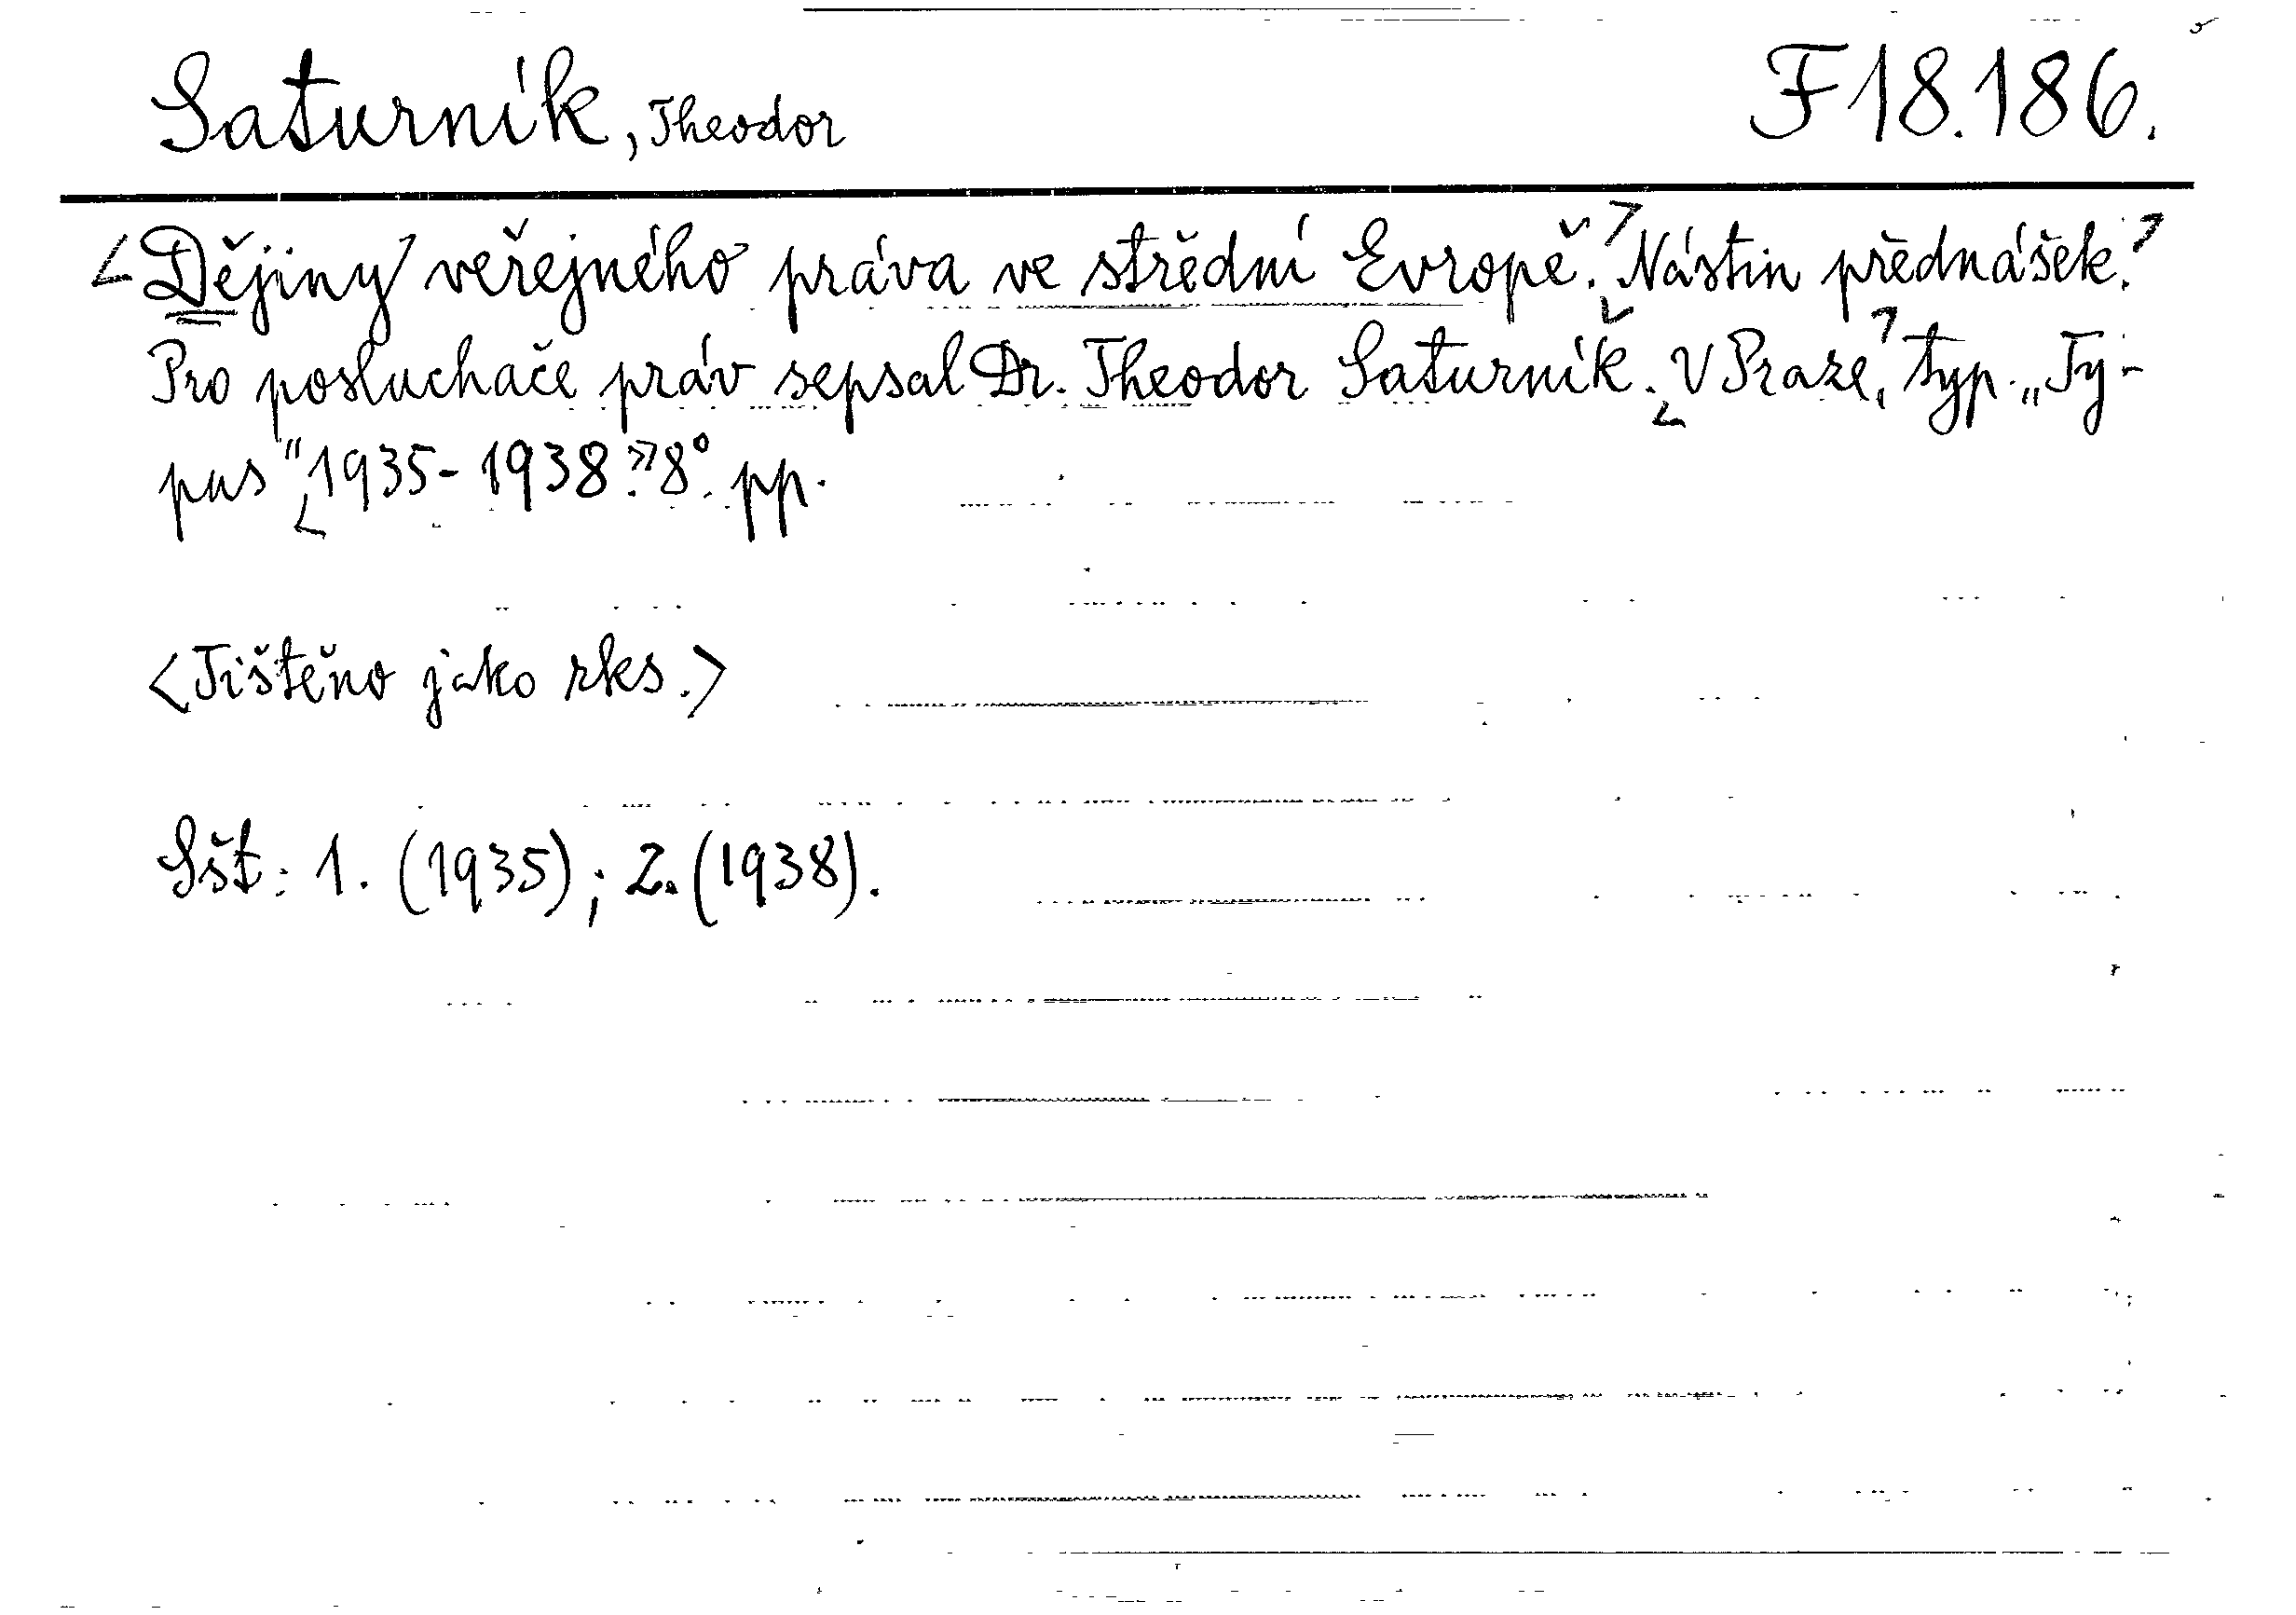 Saturník, Theodor F 18.186.
<Dějiny veřejného práva ve střední Evropě.> Nástin přednášek.>
Pro posluchače práv sepsal Dr. Theodor Saturník. <V Praze,> typ. „Ty-
pus“, <1935-1938.>> 8°. pp.
<Tištěno jako rks.>
Sšt: 1. (1935); 2. (1938).